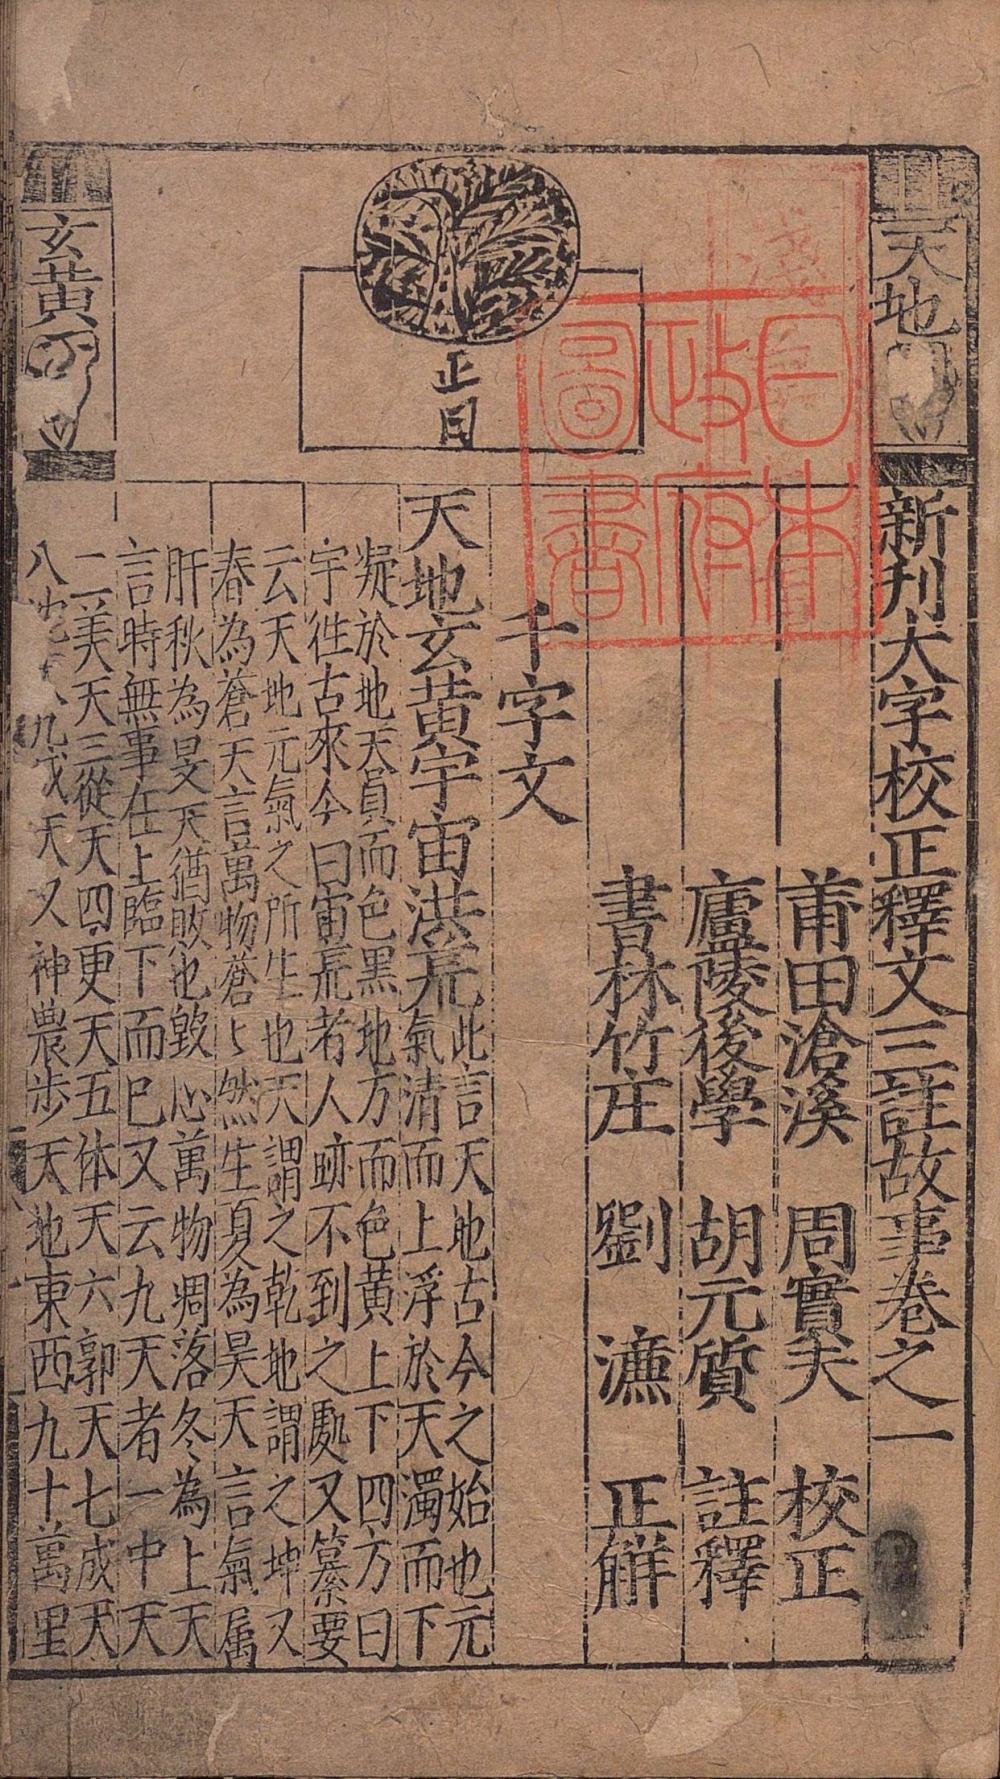 天地
新刊大字校正釋文三註故事卷之一
莆田滄溪　周實夫　校正
廬陵後學　胡元質　註釋
書林竹庄　劉　㵸　正解
千字文
天地玄黃宇宙洪荒
此言天地古今之始也元
氣清而上浮於天濁而下
凝於地天員而色黑地方而色黄上下四方曰
宇徃古來今曰宙荒者人跡不到之處又纂要
云天地元氣之所生也天謂之乾地謂之坤又
春為蒼天言萬物蒼〻然生夏為昊天言氣属
肝秋為旻天猶敃也毀心萬物凋落冬為上天
言時無事在上臨下而巳又云九天者一中天
二美天三從天四更天五体天六郭天七成天
八 九 天又神農步天地東西九十萬里
玄黄
正目
日本
政府
圖書